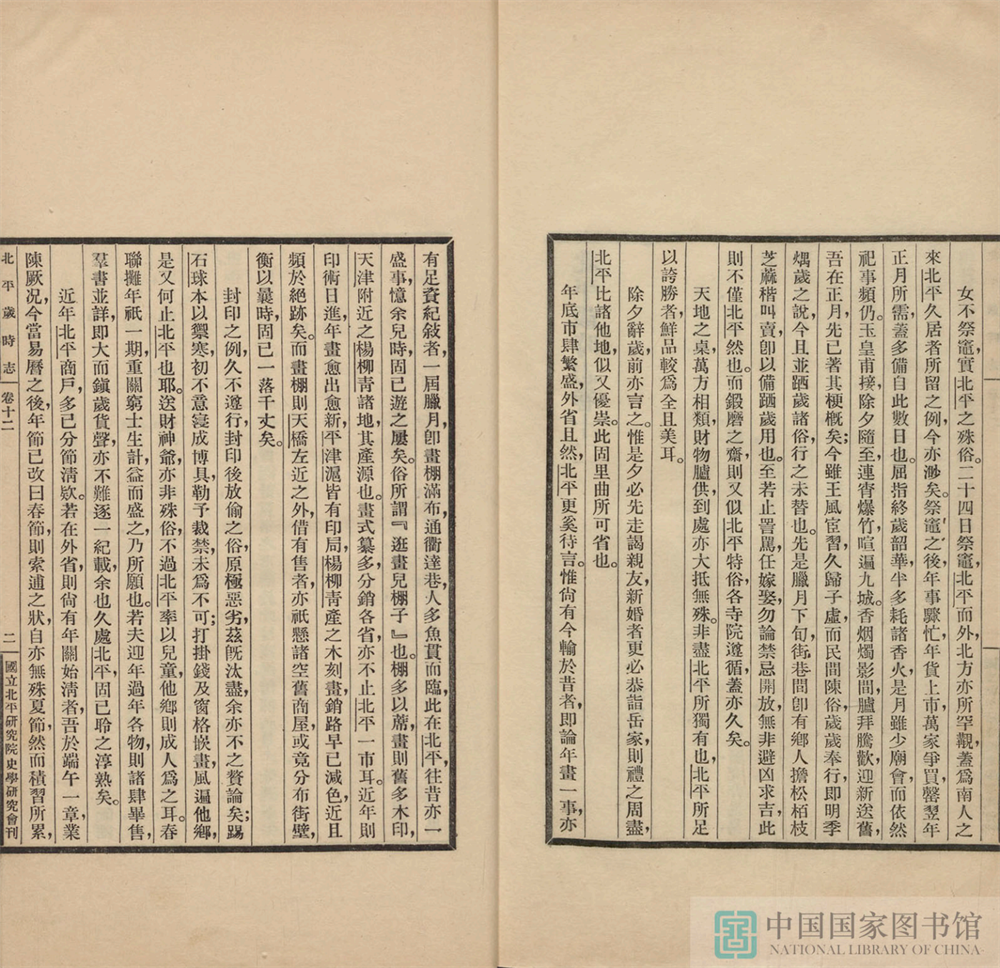 女不祭竈,實北平之殊俗。二十四日祭竈,北平而外,北方亦所罕觀,蓋爲南人之
來北平久居者所留之例,今亦渺矣。祭竈之後,年事驟忙,年貨上市,萬家爭買,罄翌年
正月所需,蓋多備自此數日也。屈指終歲韶華,半多耗諸香火,是月雖少廟會,而依然
祀事頻仍。玉皇甫接,除夕隨至,連宵爆竹,喧遍九城。香烟燭影間,臚拜騰歡,迎新送舊,
吾在正月,先已著其梗概矣;今雖王風宦習,久歸子虛,而民間陳俗,歲歲奉行,即明季
煱歲之說,今且並跴歲諸俗,行之未替也。先是臘月下旬,街巷間即有鄉人,擔松柏枝
芝蔴楷叫賣,卽以備跴歲用也。至若止詈罵,任嫁娶,勿論禁忌開放,無非避凶求吉,此
則不僅北平然也。而鍛磨之齋,則又似北平特俗,各寺院遵循,蓋亦久矣。
天地之桌,萬方相類,財物臚供,到處亦大抵無殊。非盡北平所獨有也,北平所足
以誇勝者,鮮品較爲全且美耳。
除夕辭歲,前亦言之。惟是夕必先走謁親友,新婚者更必恭詣岳家,則禮之周盡,
北平比諸他地,似又優崇。此固里曲所可省也。
年底市肆繁盛,外省且然,北平更奚待言。惟尙有今輸於昔者,即論年畫一事,亦
有足資紀敍者,一屆臘月,卽畫棚滿布,通衢達巷,人多魚貫而臨,此在北平,往昔亦一
盛事,憶余兒時,固已遊之屢矣。俗所謂『逛畫兒棚子』也。棚多以蓆,畫則舊多木印,
天津附近之楊柳靑諸地,其產源也。畫式綦多,分銷各省,亦不止北平一市耳。近年則
印術日進,年畫愈出愈新,平津滬皆有印局,楊柳靑產之木刻畫,銷路早已減色,近且
頻於絕跡矣。而畫棚則天橋左近之外,借有售者,亦祇懸諸空舊商屋,或竟分布街壁,
衡以曩時,固已一落千丈矣。
封印之例,久不遵行,封印後放偷之俗,原極惡劣,茲旣汰盡,余亦不之贅論矣;踢
石球本以禦寒,初不意寖成博具,勒予裁禁,未爲不可;打掛錢及窗格嵌畫,風遍他鄉,
是又何止北平也耶。送財神爺,亦非殊俗,不過北平率以兒童,他鄉則成人爲之耳。春
聯攤年祇一期,重關窮士生計,益而盛之,乃所願也。若夫迎年過年各物,則諸肆畢售,
羣書並詳,即大而鎭歲貨聲,亦不難逐一紀載,余也久處北平,固已聆之淳熟矣。
近年北平商戶,多已分節淸欵。若在外省,則尙有年關始淸者,吾於端午一章,業
陳厥况,今當易曆之後,年節已改曰春節,則索逋之狀,自亦無殊夏節,然而積習所累,
北平歲時志 卷十二 二 國立北平研究院史學研究會刊
中国国家图书馆
NATIONAL LIBRARY OF CHINA